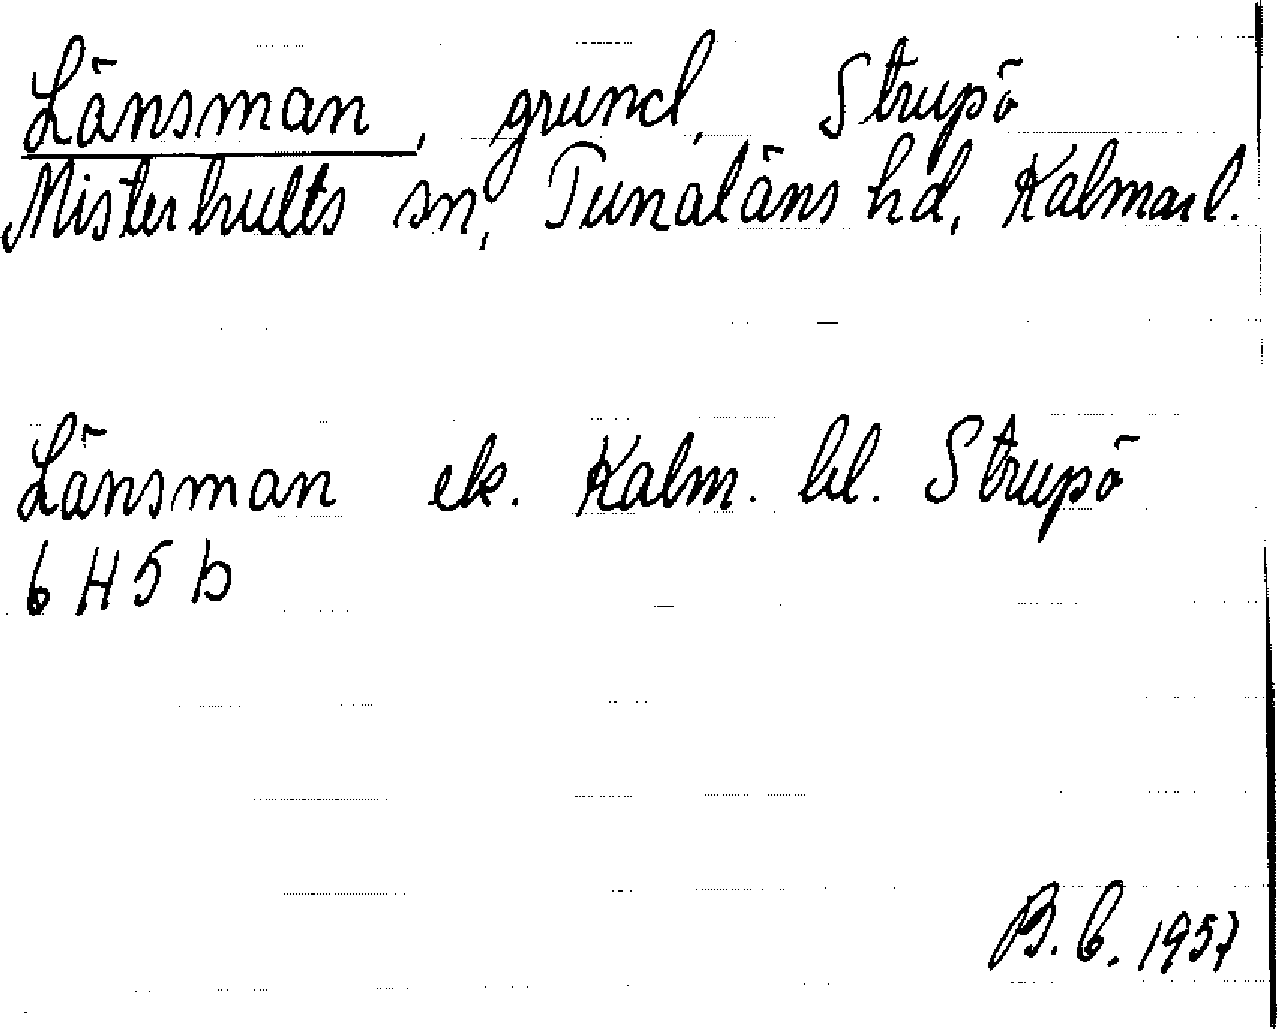 Länsman, grund, Strupö
Misterhults sn, Tunaläns hd, Kalmar l.
Länsman ek. Kalm. bl. Strupö
6 H 5 b
B. b. 1957